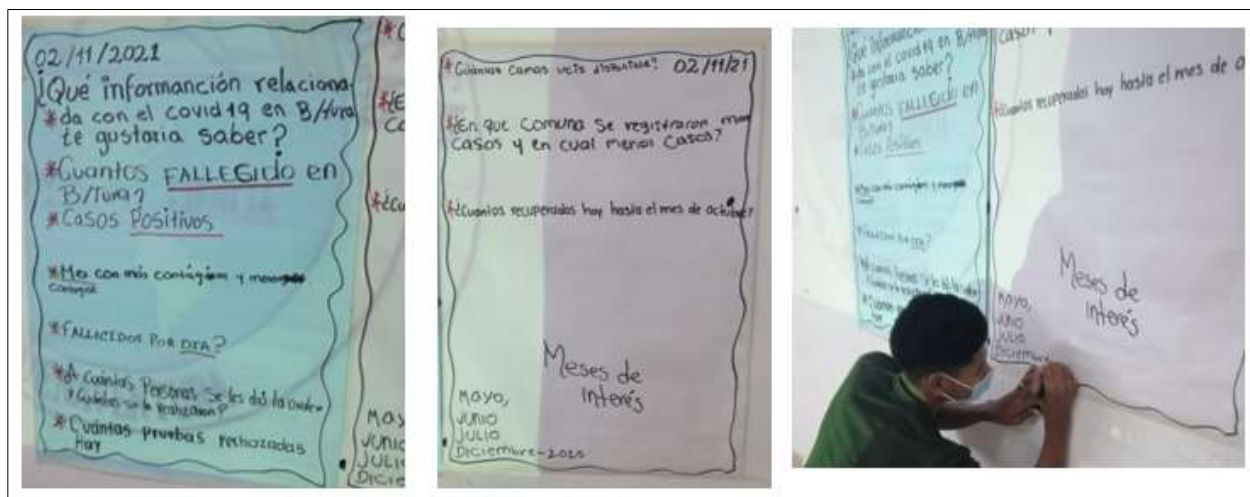 02/11/2021
¿Qué informanción relaciona-
* da con el covid 19 en B/tura
te gustaria saber?
* Cuantos FALLEGIDO en
B/Tura?
* Casos Positivos
* Mes con más contagios y menos
contagios
* FALLECIDOS POR DIA?
* A cuántas Personas se les dió la orden
* Cuántas se la realizaron?
* Cuántas pruebas rechazadas
Hay
02/11/21
* Cuántas camas ucis disponible?
* ¿En que comuna se registraron mas
casos y en cual menos casos?
* ¿Cuantos recuperados hay hasta el mes de octubre?
Meses de
interés
Mayo,
JUNIO
JULIO
Diciembre-2020
da con el covid 19 en B/tura
te gustaria saber?
* Cuantos FALLEGIDO en
B/Tura?
* Casos Positivos
casos?
* ¿Cuantos recuperados hay hasta el mes de o
Meses de
interés
Mayo,
JUNIO
JULIO
Diciembre